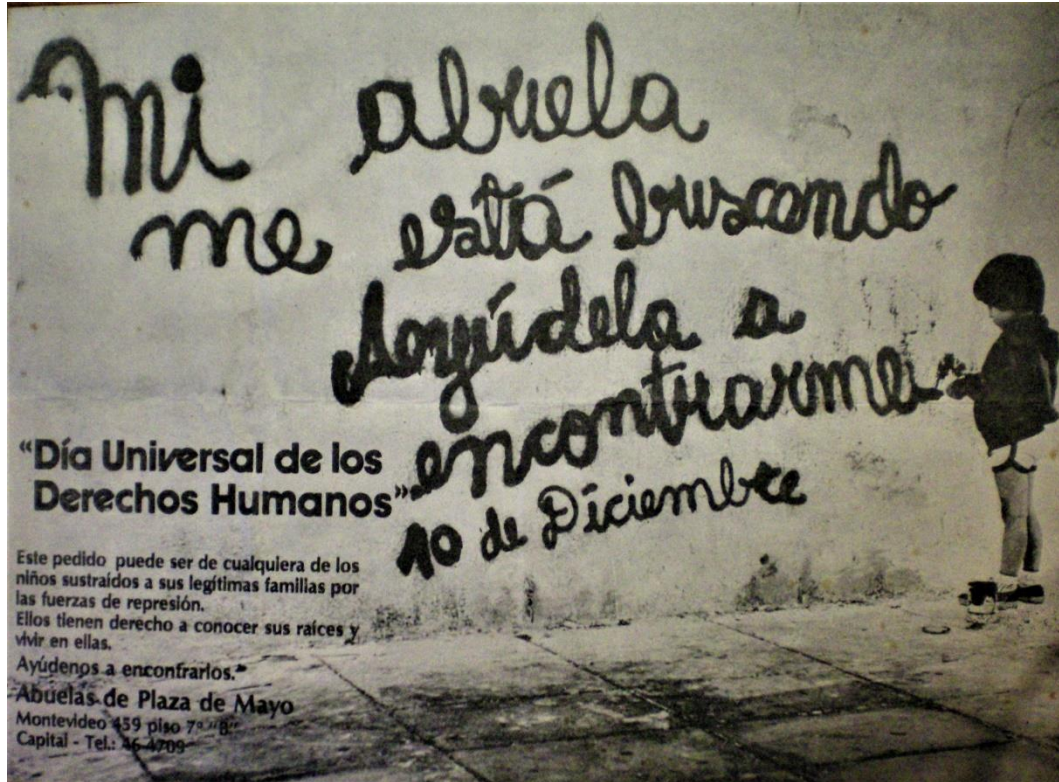 Mi abuela
me está buscando
Ayúdela a
encontrarme
10 de Diciembre
“Día Universal de los
Derechos Humanos”
Este pedido puede ser de cualquiera de los
niños sustraídos a sus legítimas familias por
las fuerzas de represión.
Ellos tienen derecho a conocer sus raíces y
vivir en ellas.
Ayúdenos a encontrarlos.”
Abuelas de Plaza de Mayo
Montevideo 459 piso 7º “B”
Capital - Tel.: 46-4709